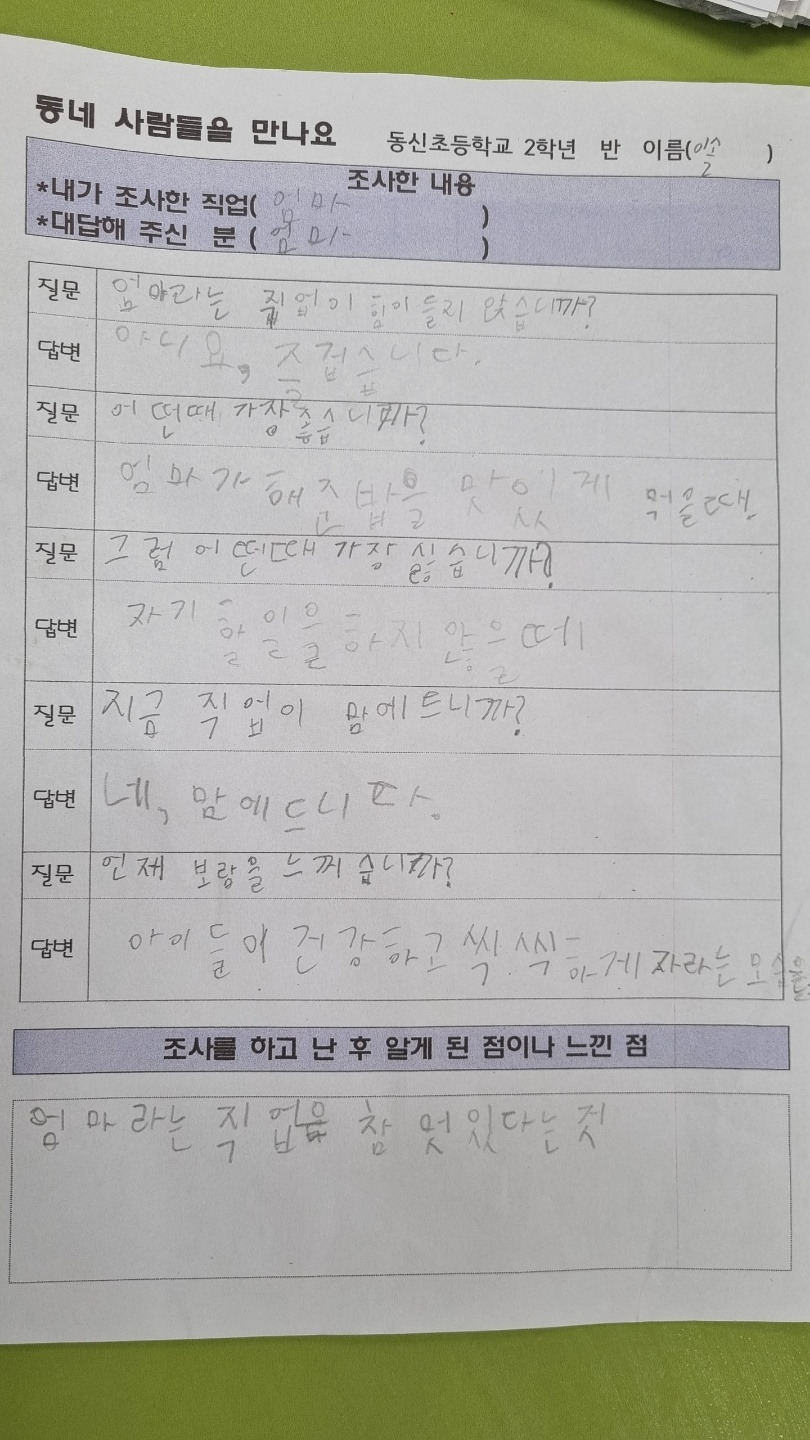 동네 사람들을 만나요 동신초등학교 2학년 반 이름(이솔 )
조사한 내용
*내가 조사한 직업( 엄마 )
*대답해 주신 분 ( 엄마 )
질문 엄마라는 직업이 힘이들지 않습니까?
답변 아니요, 즐겁습니다.
질문 어떤때 가장 좋습니까?
답변 엄마가 해준밥을 맛있게 먹을때.
질문 그럼 어떤때 가장 싫습니까?
답변 자기 할일을 하지 않을떼
질문 지금 직업이 맘에드니까?
답변 네, 맘에드니다.
질문 언제 보람을 느끼습니까?
답변 아이들이 건강하고 씩씩하게 자라는 모습을
조사를 하고 난 후 알게 된 점이나 느낀 점
엄마라는 직업은 참 멋있다는것